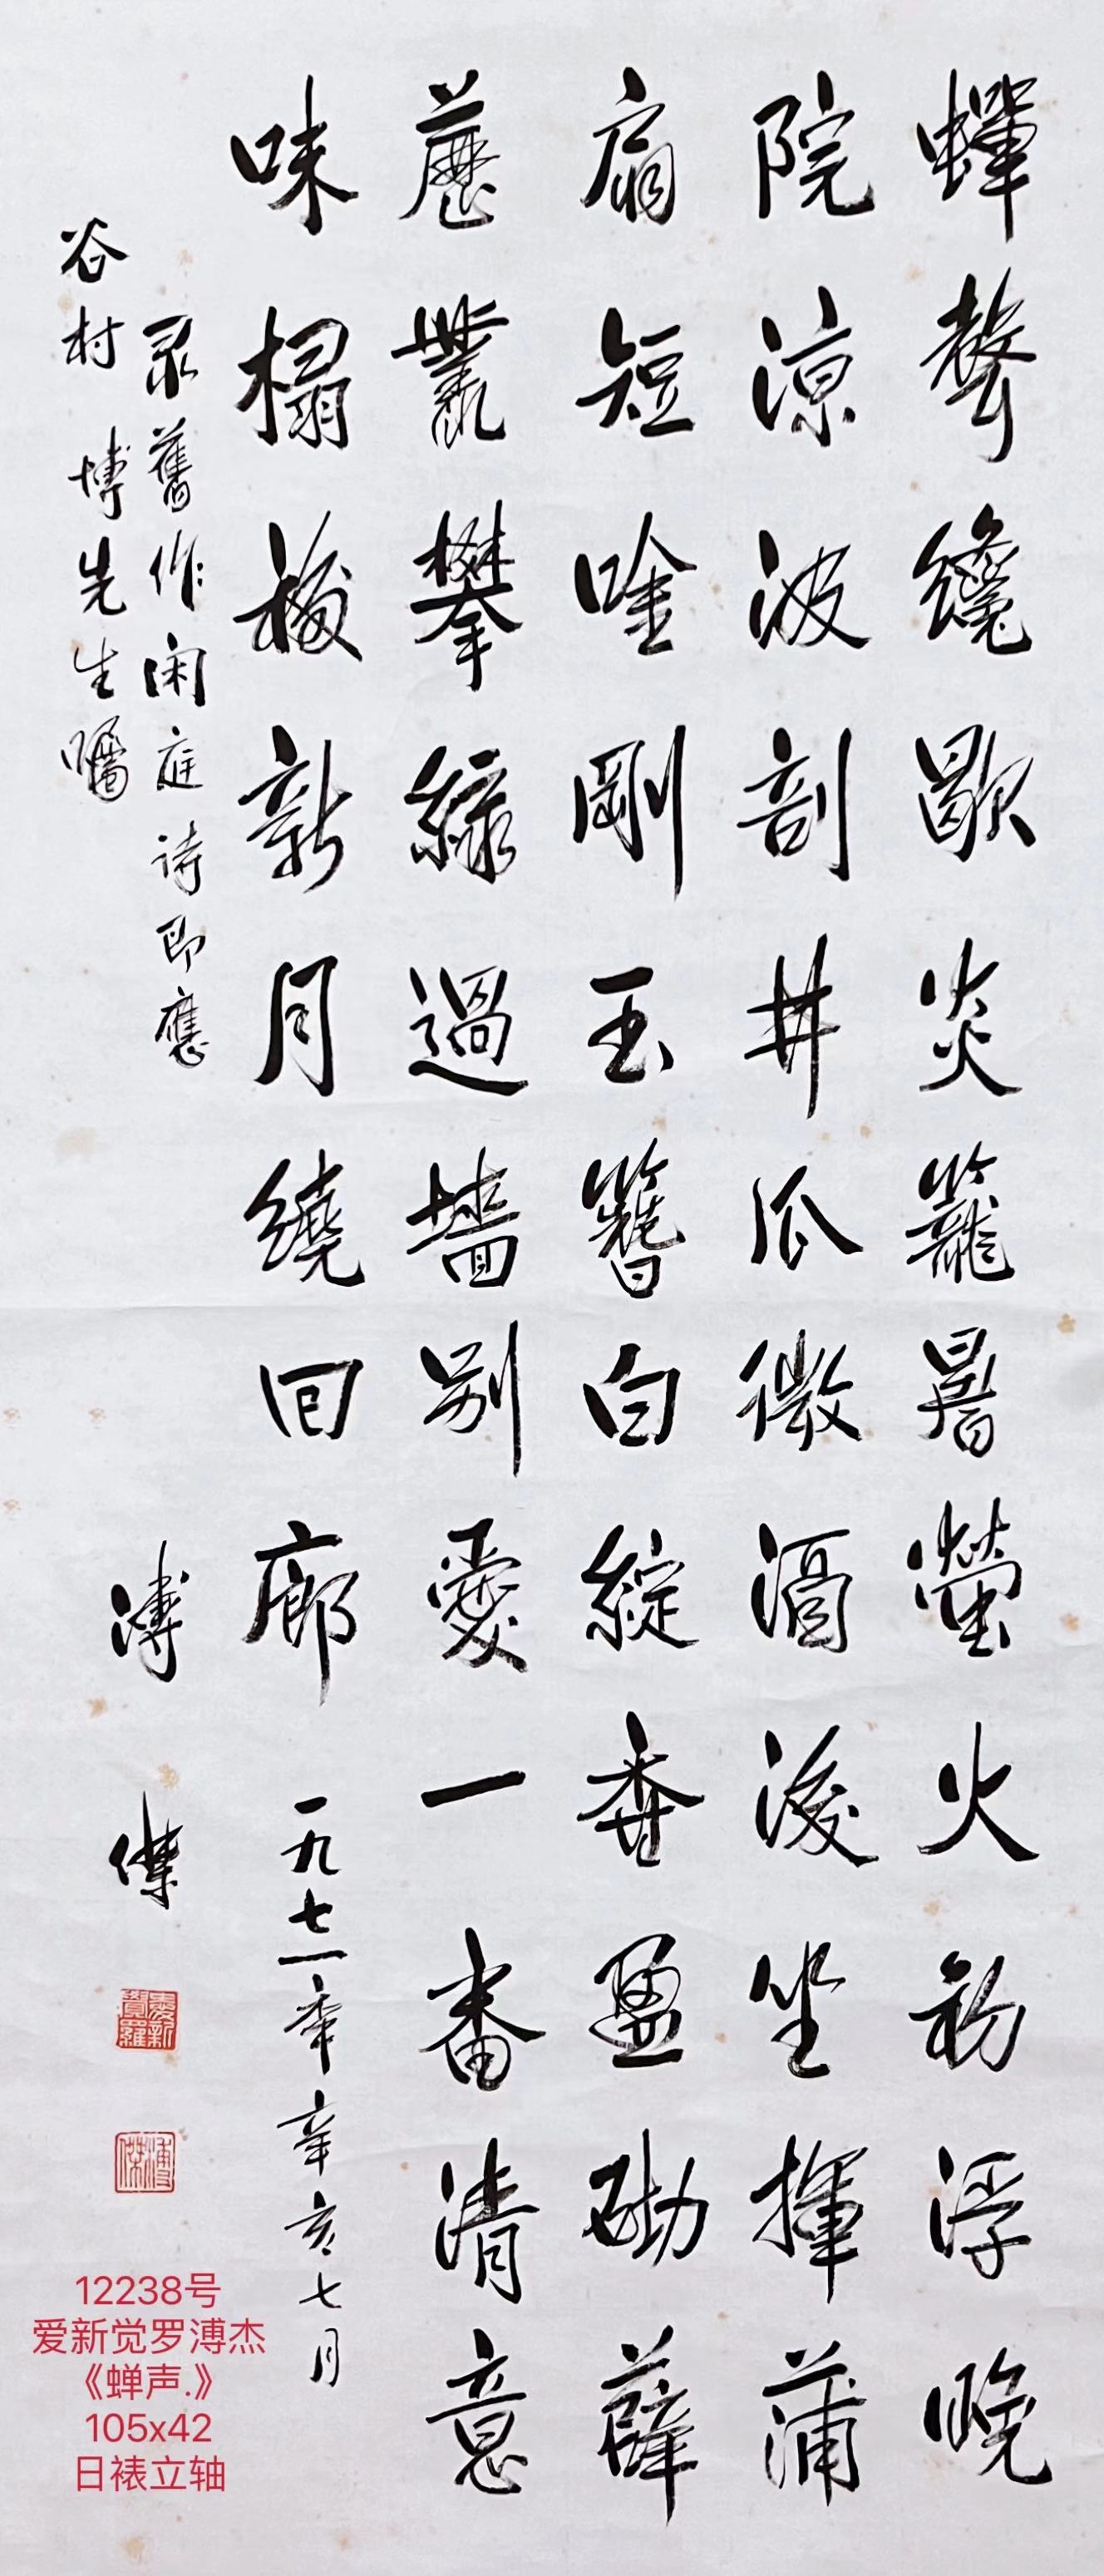 蟬聲纔歇炎籠暑螢火初浮晚
院涼波剖井瓜微酒後坐揮蒲
扇短唫剛玉簪白綻香盈砌薜
藶叢攀綠過墻別愛一番清意
味榻移新月繞回廊 一九七一年辛亥七月
录舊作闲庭诗即應
谷村博先生囑
溥傑
愛新覺羅
溥傑
12238号
爱新觉罗溥杰
《蝉声.》
105x42
日裱立轴